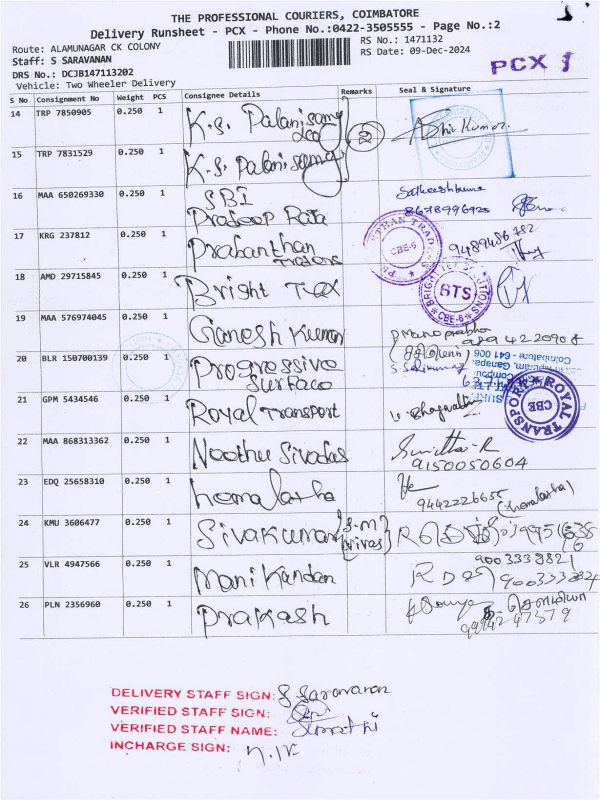 THE PROFESSIONAL COURIERS, COIMBATORE
Delivery Runsheet - PCX - Phone No.:0422-3505555 - Page No.:2
Route: ALAMUNAGAR CK COLONY
RS No.: 1471132
Staff: S SARAVANAN
RS Date: 09-Dec-2024
DRS No.: DCJB147113202
PCX 1
Vehicle: Two Wheeler Delivery
S No Consignment No Weight PCS Consignee Details Remarks Seal & Signature
14 TRP 7850905 0.250 1 K.S. Palanisamy
2
15 TRP 7831529 0.250 1 K.S. Palanisamy
16 MAA 650269330 0.250 1 SBI
Pradeep Raja
Satheeshkumar
8678996725
17 KRG 237812 0.250 1 Prabanthan
Traders
CBE-6
9489486782
18 AMD 29715845 0.250 1 Bright Tex
BTS
CBE-6
19 MAA 576974045 0.250 1 Ganesh Kumar
9894220908
20 BLR 150700139 0.250 1 Progressive
Surface
Coimbatore - 641 006
21 GPM 5434546 0.250 1 Royal Transport
ROYAL TRANSPORT
CBE
22 MAA 868313362 0.250 1 Noothu Sivadas Sunitha-R
9150050604
23 EDQ 25658310 0.250 1 homalatha
9442226655
(homalatha)
24 KMU 3606477 0.250 1 Sivakumar
25 VLR 4947566 0.250 1 Manikandan
26 PLN 2356960 0.250 1 Prakash
DELIVERY STAFF SIGN: S Saravanan
VERIFIED STAFF SIGN:
VERIFIED STAFF NAME:
INCHARGE SIGN: